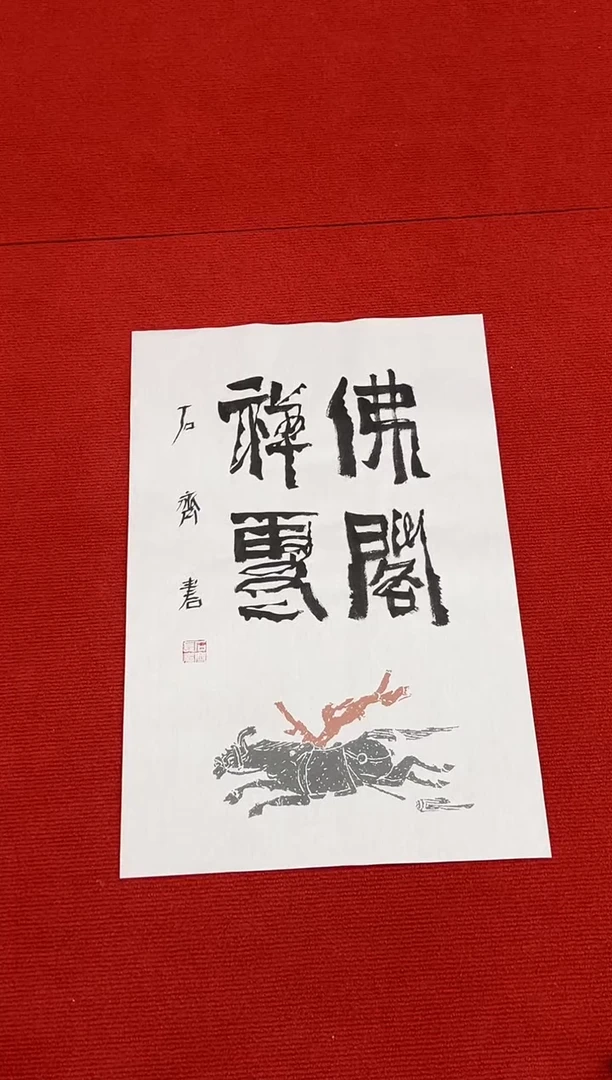 佛閣
祥雲
石齊書